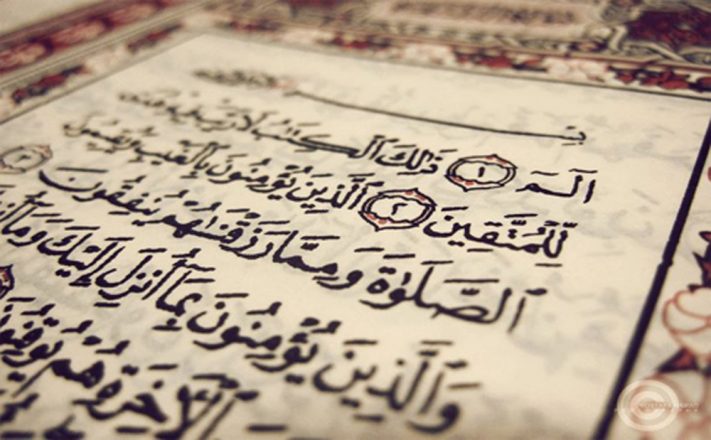 بِسْمِ
الٓمٓ ١ ذَٰلِكَ ٱلْكِتَٰبُ لَا رَيْبَ فِيهِ
لِّلْمُتَّقِينَ ٢ ٱلَّذِينَ يُؤْمِنُونَ بِٱلْغَيْبِ وَيُقِيمُونَ
ٱلصَّلَوٰةَ وَمِمَّا رَزَقْنَٰهُمْ يُنفِقُونَ ٣
وَٱلَّذِينَ يُؤْمِنُونَ بِمَآ أُنزِلَ إِلَيْكَ وَمَآ
ٱلْأَخِرَةِ هُمْ يُوقِنُونَ